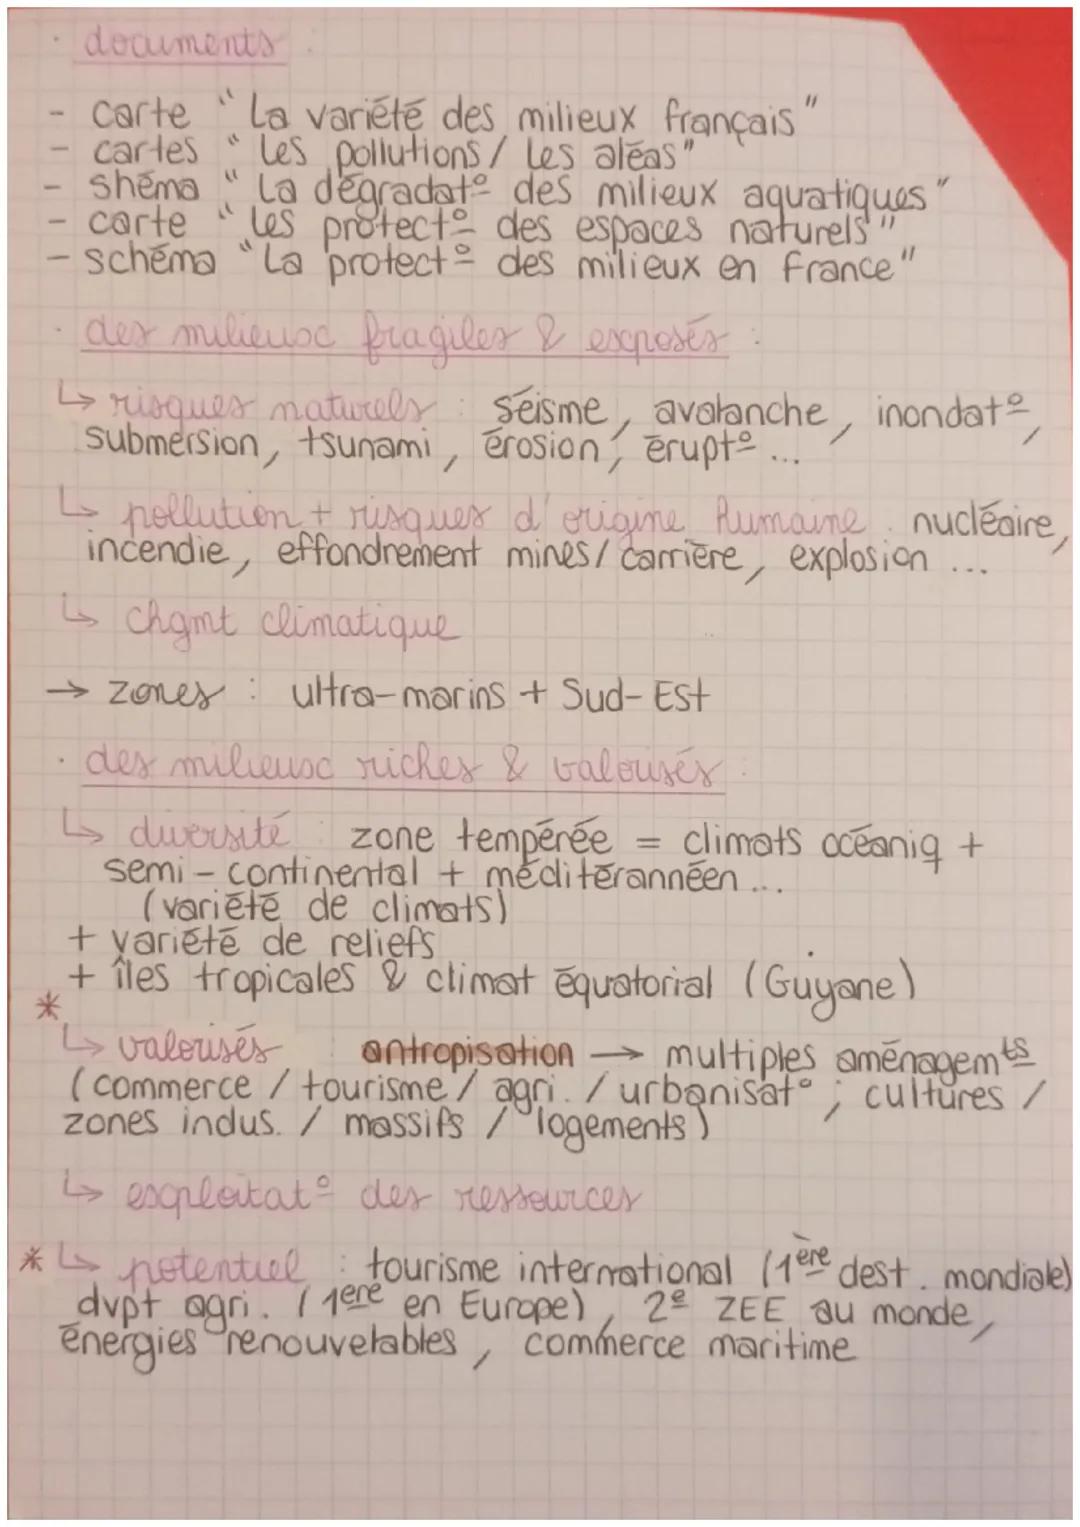 · documents :
- carte "La variété des milieux français"
- cartes "Les pollutions / Les aléas"
- shéma "La dégradat° des milieux aquatiques"
- carte "les protect° des espaces naturels"
- schéma "La protect° des milieux en France"
· des milieux fragiles & exposés :
↳ risques naturels : séisme, avalanche, inondat°,
submersion, tsunami, érosion, érupt° ...
↳ pollution + risques d'origine humaine : nucléaire,
incendie, effondrement mines/carrière, explosion ...
↳ chgmt climatique
→ zones : ultra-marins + Sud-Est
· des milieux riches & valorisés :
↳ diversité : zone tempérée = climats océaniq +
semi-continental + méditérannéen ...
(variété de climats)
+ variété de reliefs
+ îles tropicales & climat équatorial (Guyane)
*
↳ valorisés : antropisation → multiples aménagemts
(commerce / tourisme / agri. / urbanisat° ; cultures /
zones indus. / massifs / logements)
↳ exploitat° des ressources
* ↳ potentiel : tourisme international (1ère dest. mondiale)
dvpt agri. (1ere en Europe), 2e ZEE au monde,
énergies renouvelables, commerce maritime